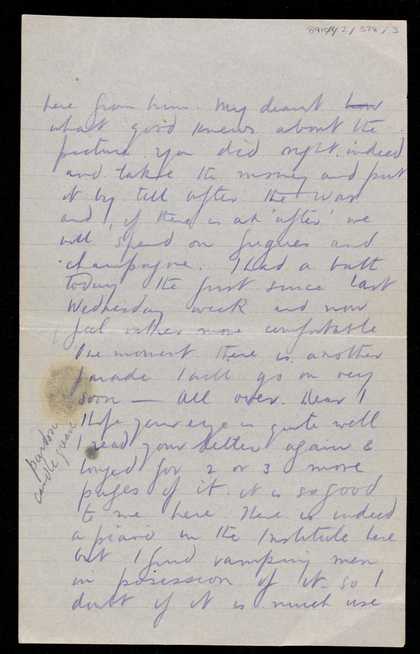 here from him. My dearest how
what good knews about the
picture you did right indeed
and take the money and put
it by till after the War
and, if there is an 'after' we
will spend on fugues and
champagne. I had a bath
today the first since last
Wednesday week and now
feel rather more comfortable
One moment there is another
I will go on very
soon — All over. Dear I
I hope your eye is quite well
I read your letter again &
longed for 2 or 3 more
pages of it. it is so good
to me here. There is indeed
a piano in the Institute here
but I find vamping men
in posession of it. so I
doubt if it is much use
pardon
candle grease